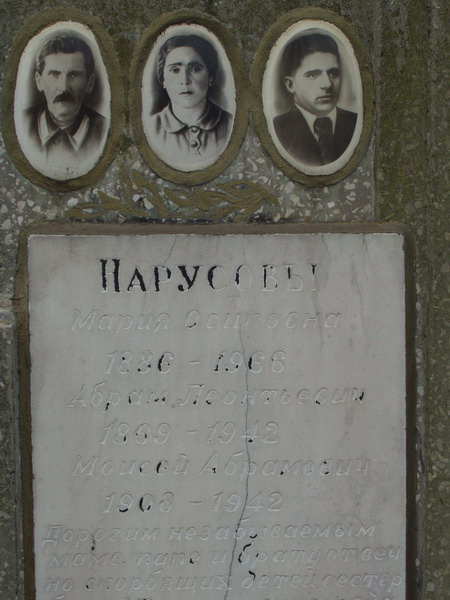 ПАРУСОВЫ
Мария Осиповна
1886 – 1966
Абрам Леонтьевич
1869 – 1942
Моисей Абрамович
1908 – 1942
Дорогим незабываемым
маме, папе и брату от веч-
но скорбящих детей, сестер